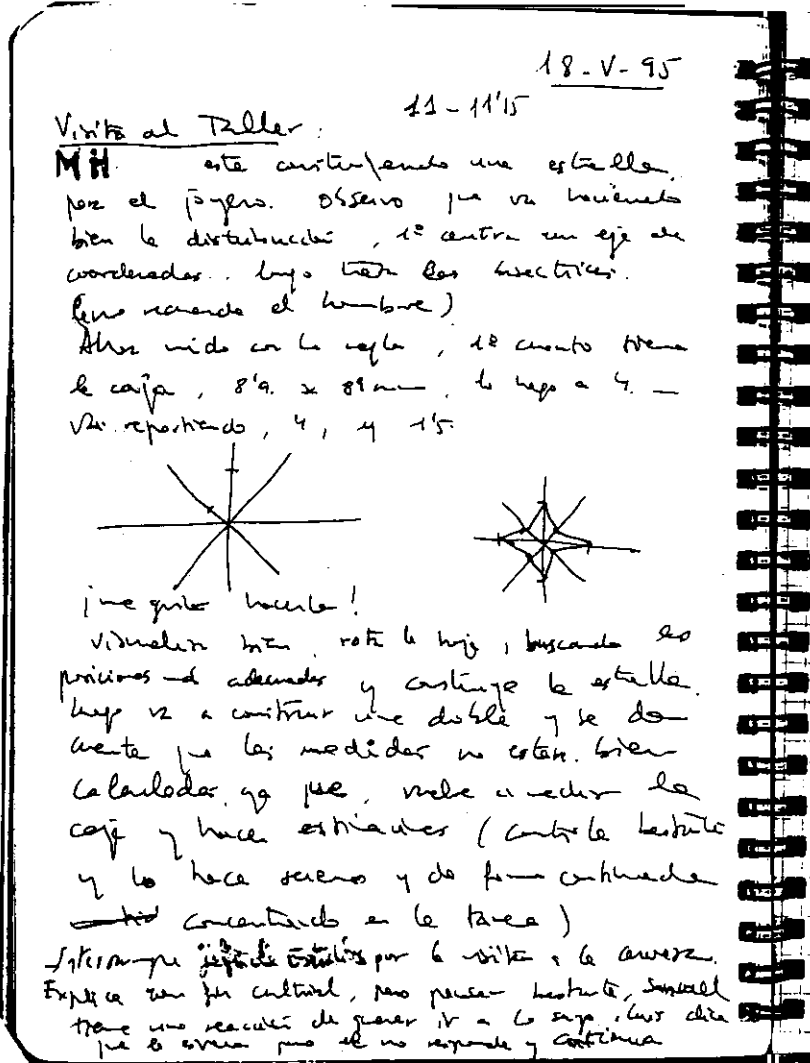 18-V-95
11-11'15
Visita al Taller:
MH está construyendo una estrella
para el joyero. Observo que va haciendo
bien la distribución, 1º centra un eje de
coordenadas. luego traza las bisectrices.
el nombre)
Ahora mido con la regla, 1º cuanto tiene
la caja, 8'9. x 89 mm, lo hago a 4.
Va repartiendo, 4, y 1'5.
¡me gusta hacerla!
Visualiza bien, rota la hoja, buscando las
posiciones más adecuadas y construye la estrella.
Luego va a construir una doble y se da
cuenta que las medidas no están bien
calculadas, ya que, vuelve a medir la
caja y hace estimaciones (controla bastante
y lo hace sereno y de forma continuada
concentrado en la tarea)
Interrumpe por la visita a la
Explica con fin cultural, pero bastante,
tiene una reacción de querer ir a lo suyo, Luis dice
que pero él no responde y continua